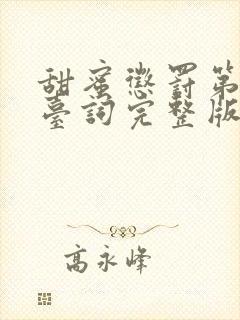 甜蜜懲罰第
臺詞完整版
高永峰